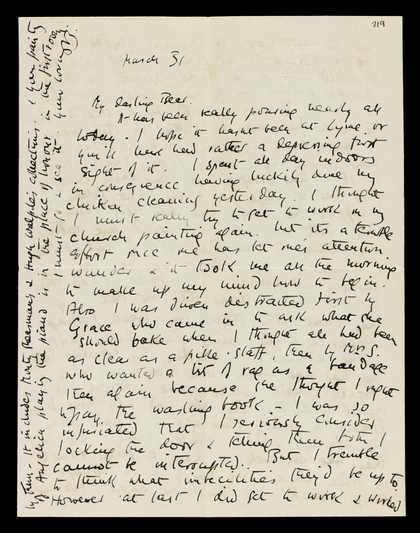 219
March 31
My darling Bear.
It has been really pouring nearly all
today. I hope it hasnt been at Lyme. or
you'll have had rather a depressing first
sight of it. I spent all day indoors
in consequence having luckily done my
chicken cleaning yesterday. I thought
I must really try to get to work on my
church painting again. but its a terrible
effort once one has let one's attention
wander & it took me all the morning
to make up my mind how to begin
Also I was driven distracted first by
Grace who came in to ask what she
should bake when I thought all had been
as clear as a pike-staff, then by Mrs S.
who wanted a bit of rag as a bandage
then again because she thought I ought
to pay the washing book - I was so
infuriated that I seriously consider
locking the door & telling them both I
cannot be interrupted. But I tremble
to think what imbecilities they'd be up to
However at last I did get to work & worked
in them. It includes Hugh Walpole's collections. & your painting
of Angelica playing the piano is in the place of honour in the first room
I must go & see it. Your loving